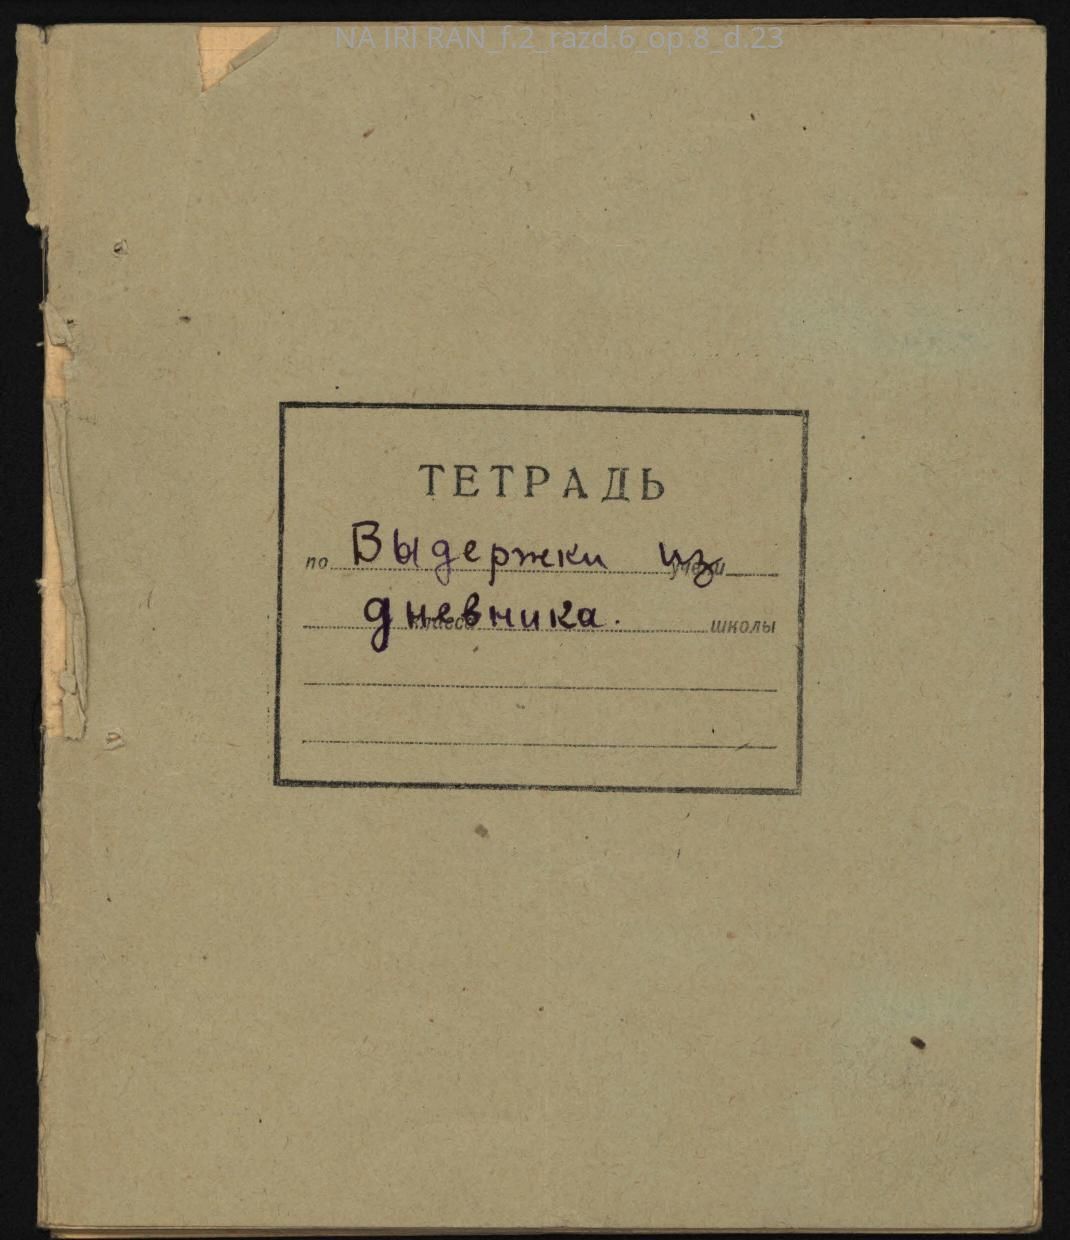 NA IRI RAN_f.2_razd.6_op.8_d.23
ТЕТРАДЬ
по Выдержки из учени
дневника. класса школы